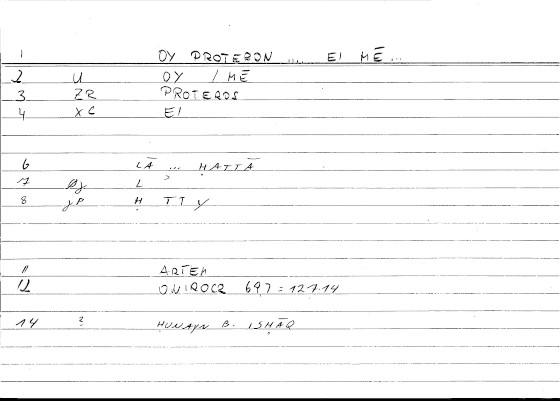 1 OY PROTERON .... EI MĒ ...
2 U OY / MĒ
3 ZR PROTEROS
4 XC EI
6 LĀ ... ḤATTĀ
7 Øj L ʾ
8 jP Ḥ T T Y
11 ARTEM
12 ONIROCR 69,7 = 127.14
14 ? ḤUNAYN B. ISḤĀQ